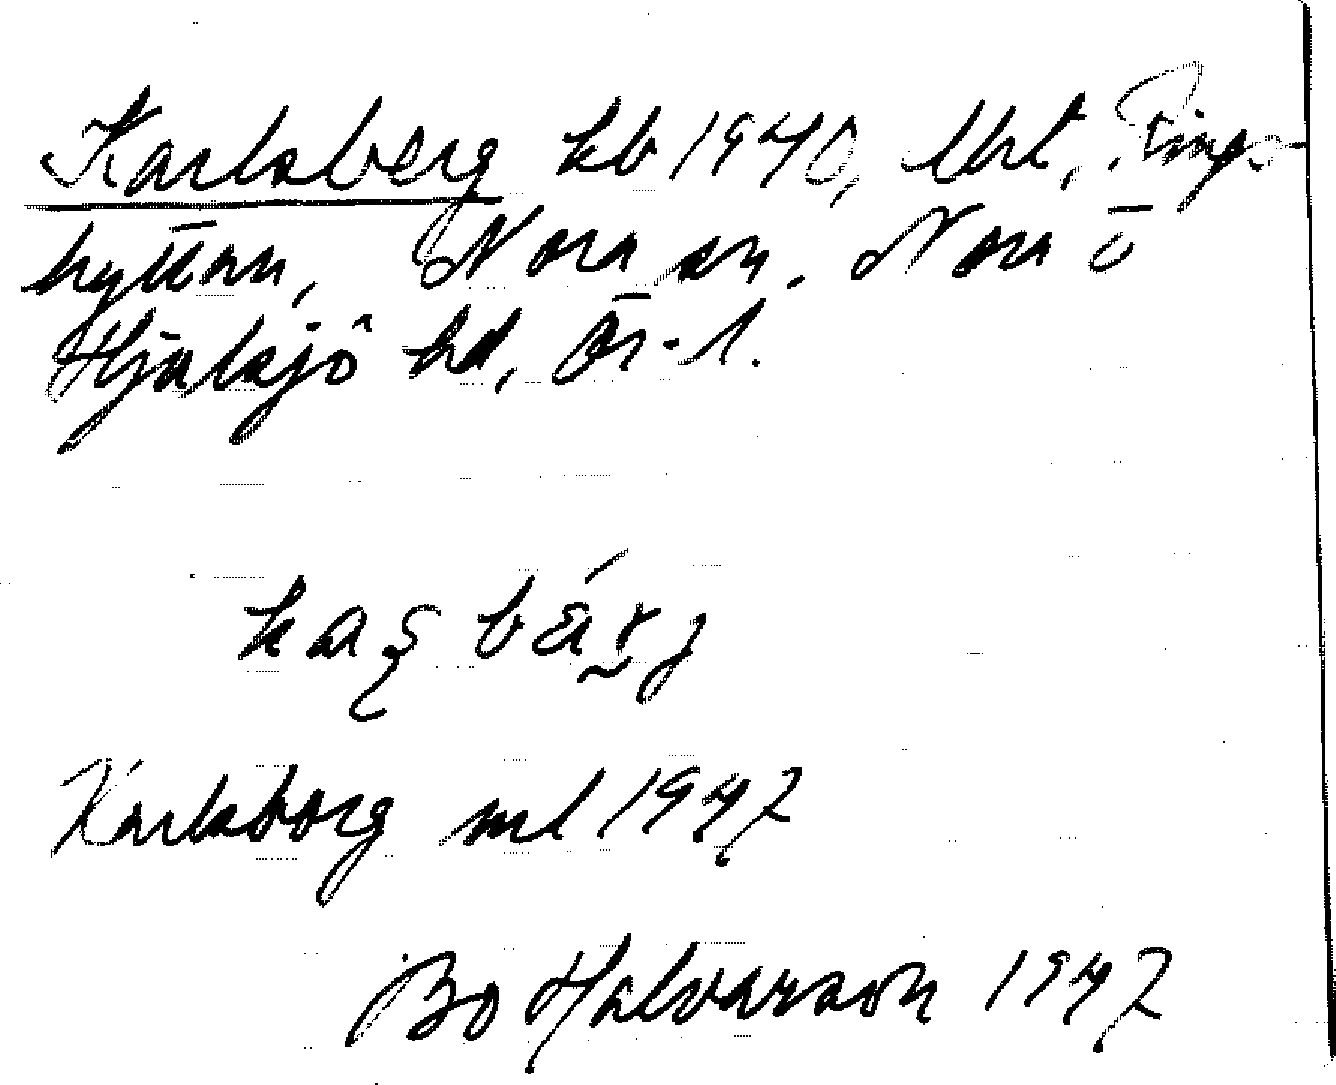 Karlsberg kb 1940, Urt, Rings-
hyttan, Nora sn. Nora o
Hjulsjö hd, Ör. l.
Karlsborg ml 1947
Bo Halvarson 1947